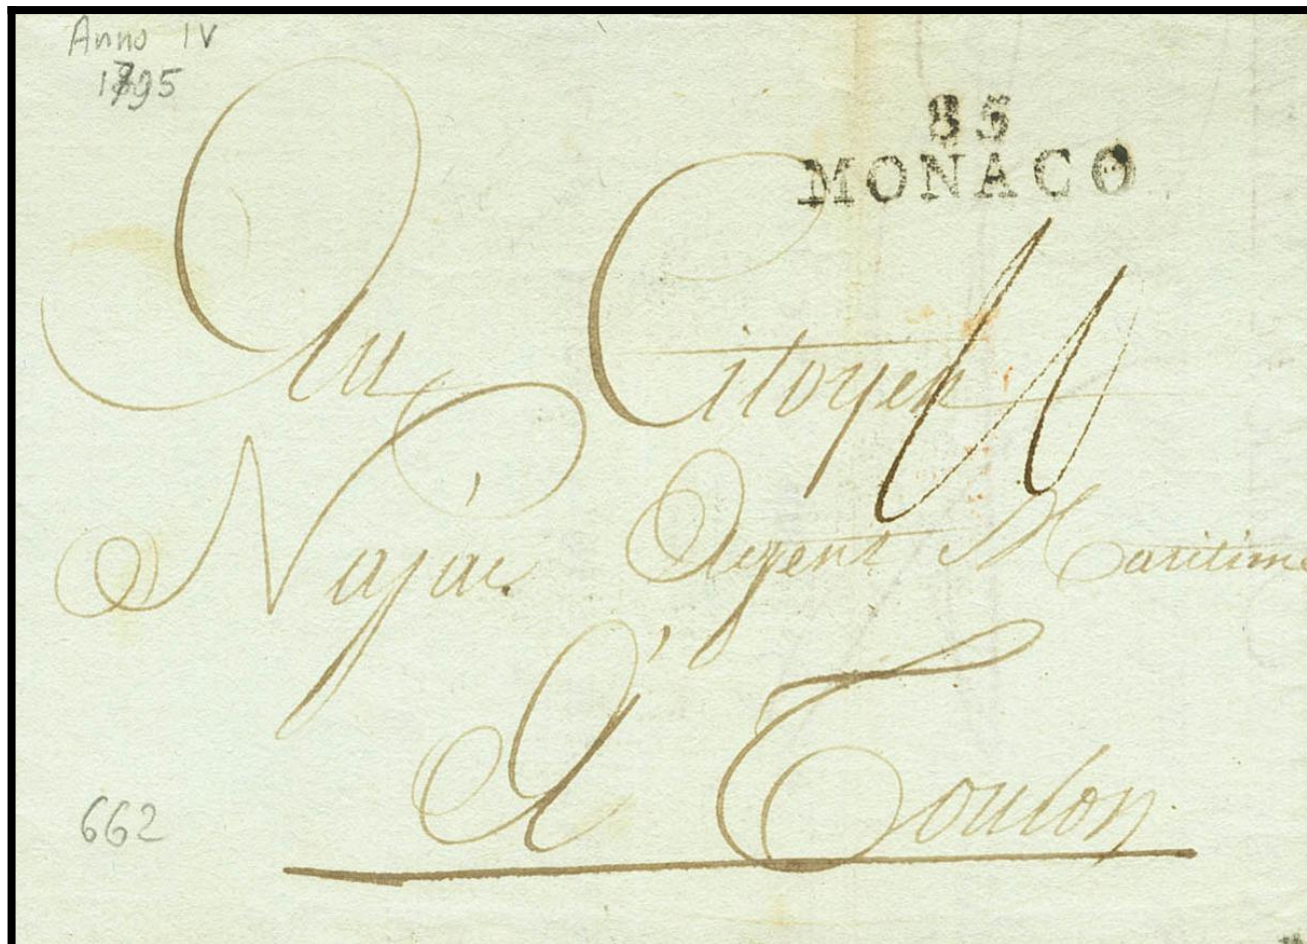 Anno IV
1795
85
MONACO
Au Citoyen
Najac Agent Maritime
A Toulon
662